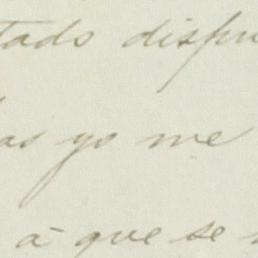 tado dispu
as yo me
à que se